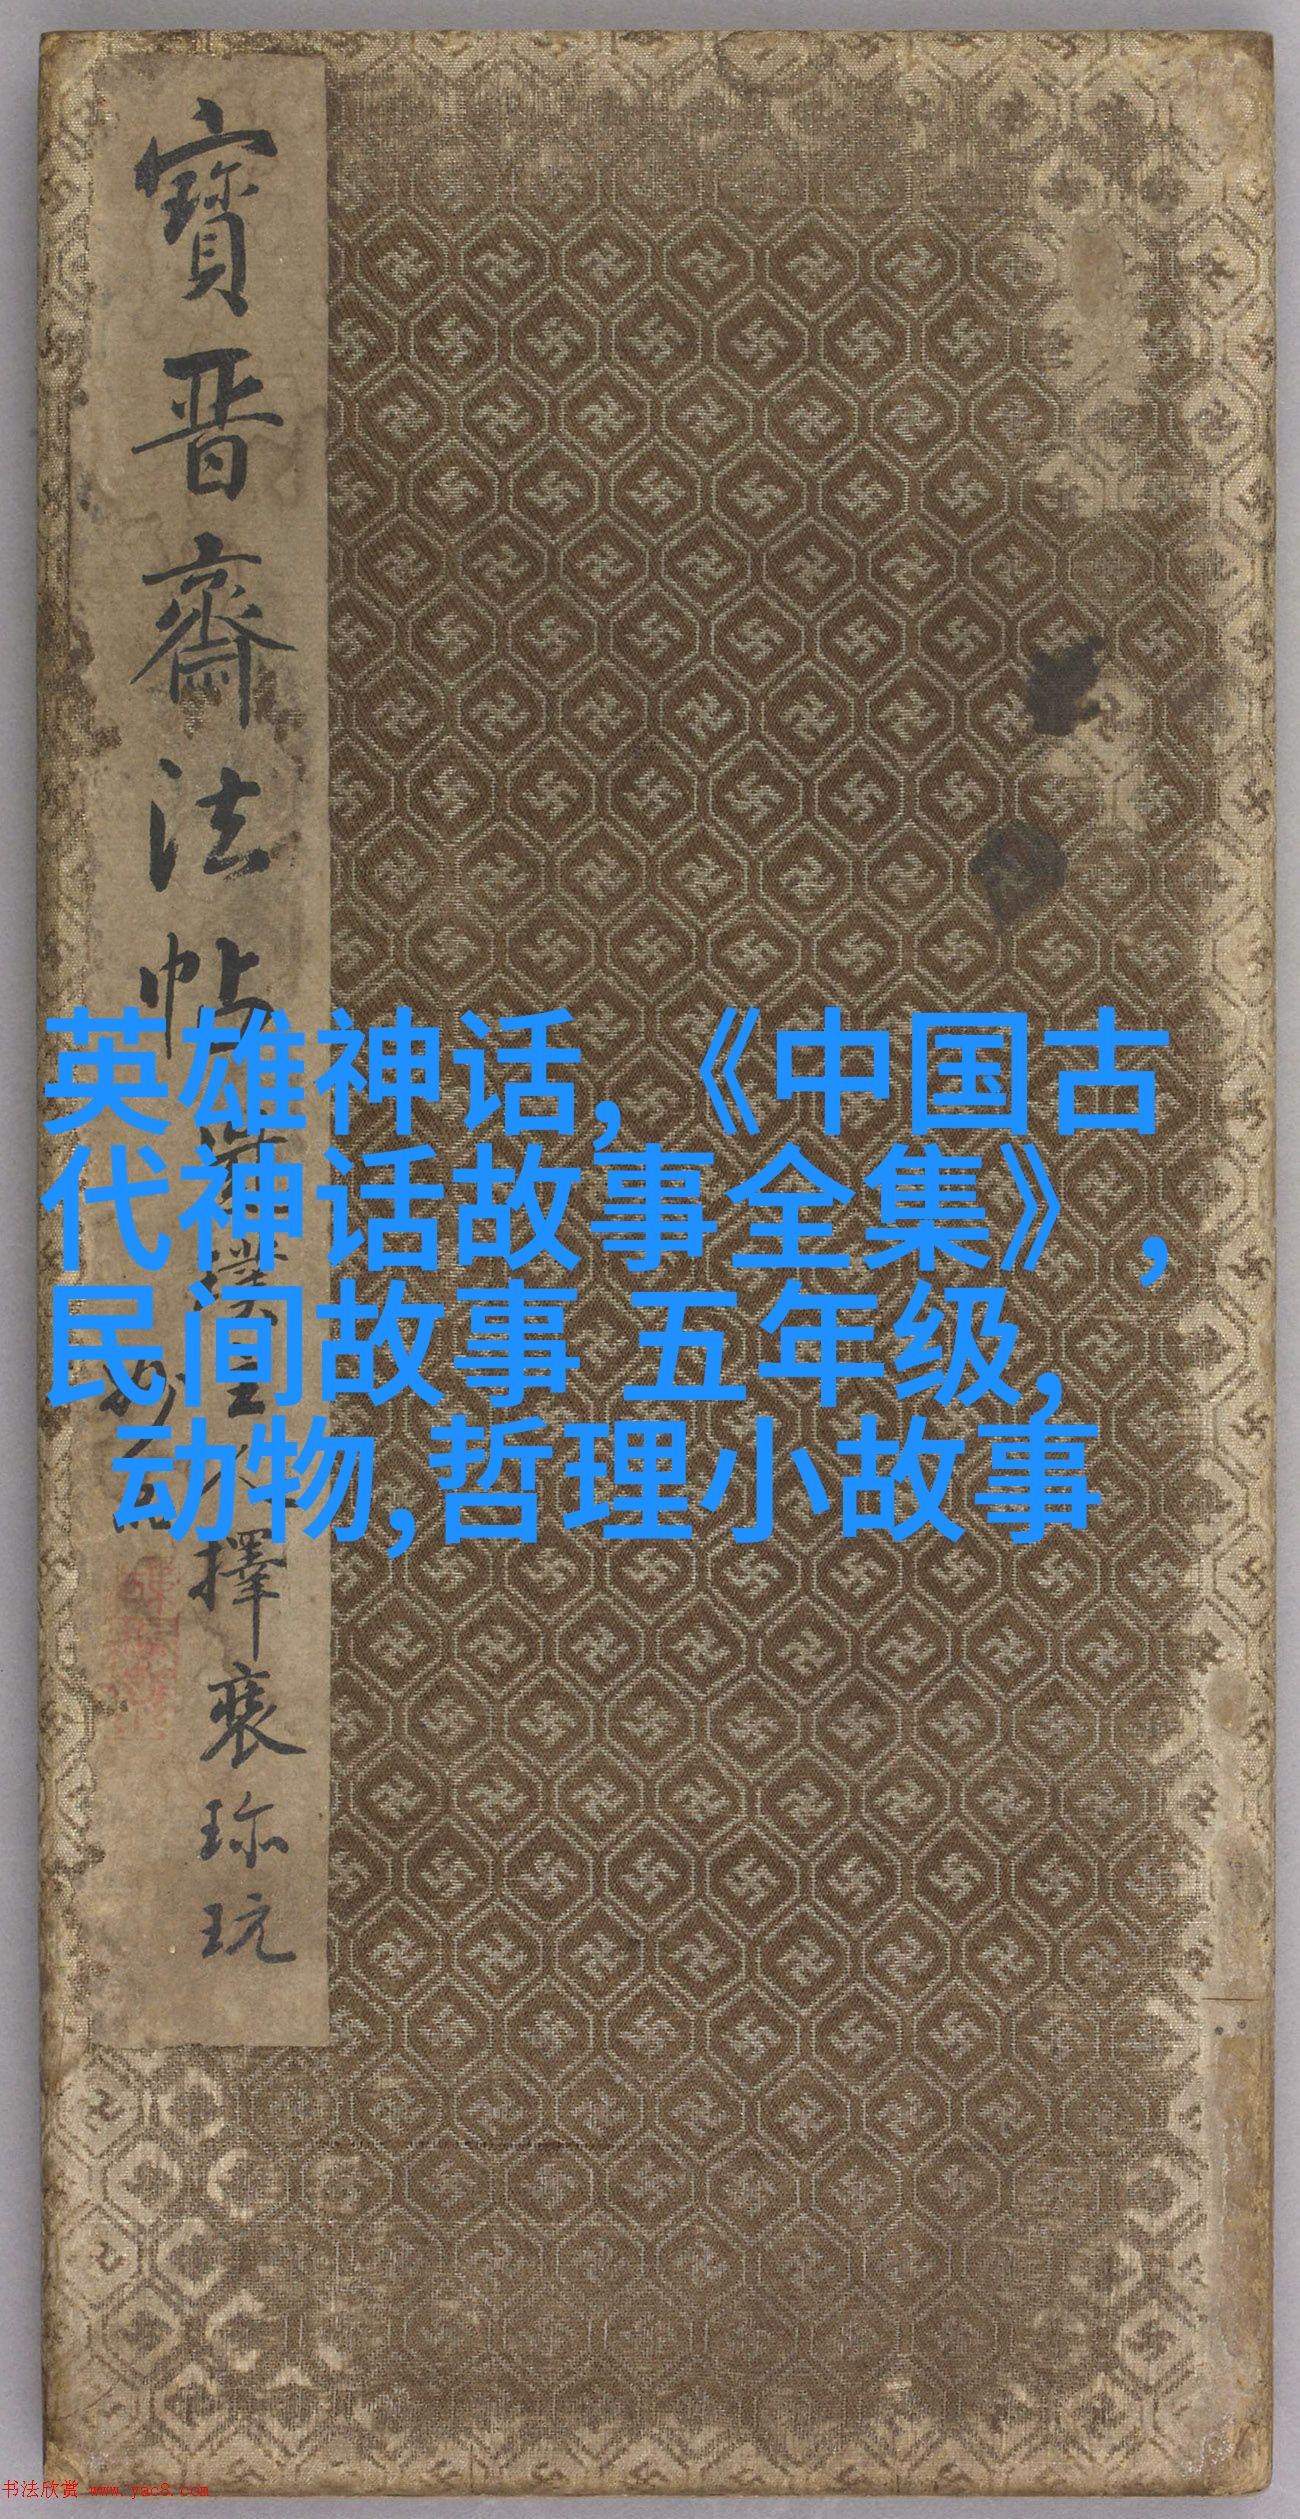 寶晋齋法帖
擇裴珎玩
英雄神话,《中国古
代神话故事全集》,
民间故事 五年级,
动物,哲理小故事
书法欣赏 www.yac8.com